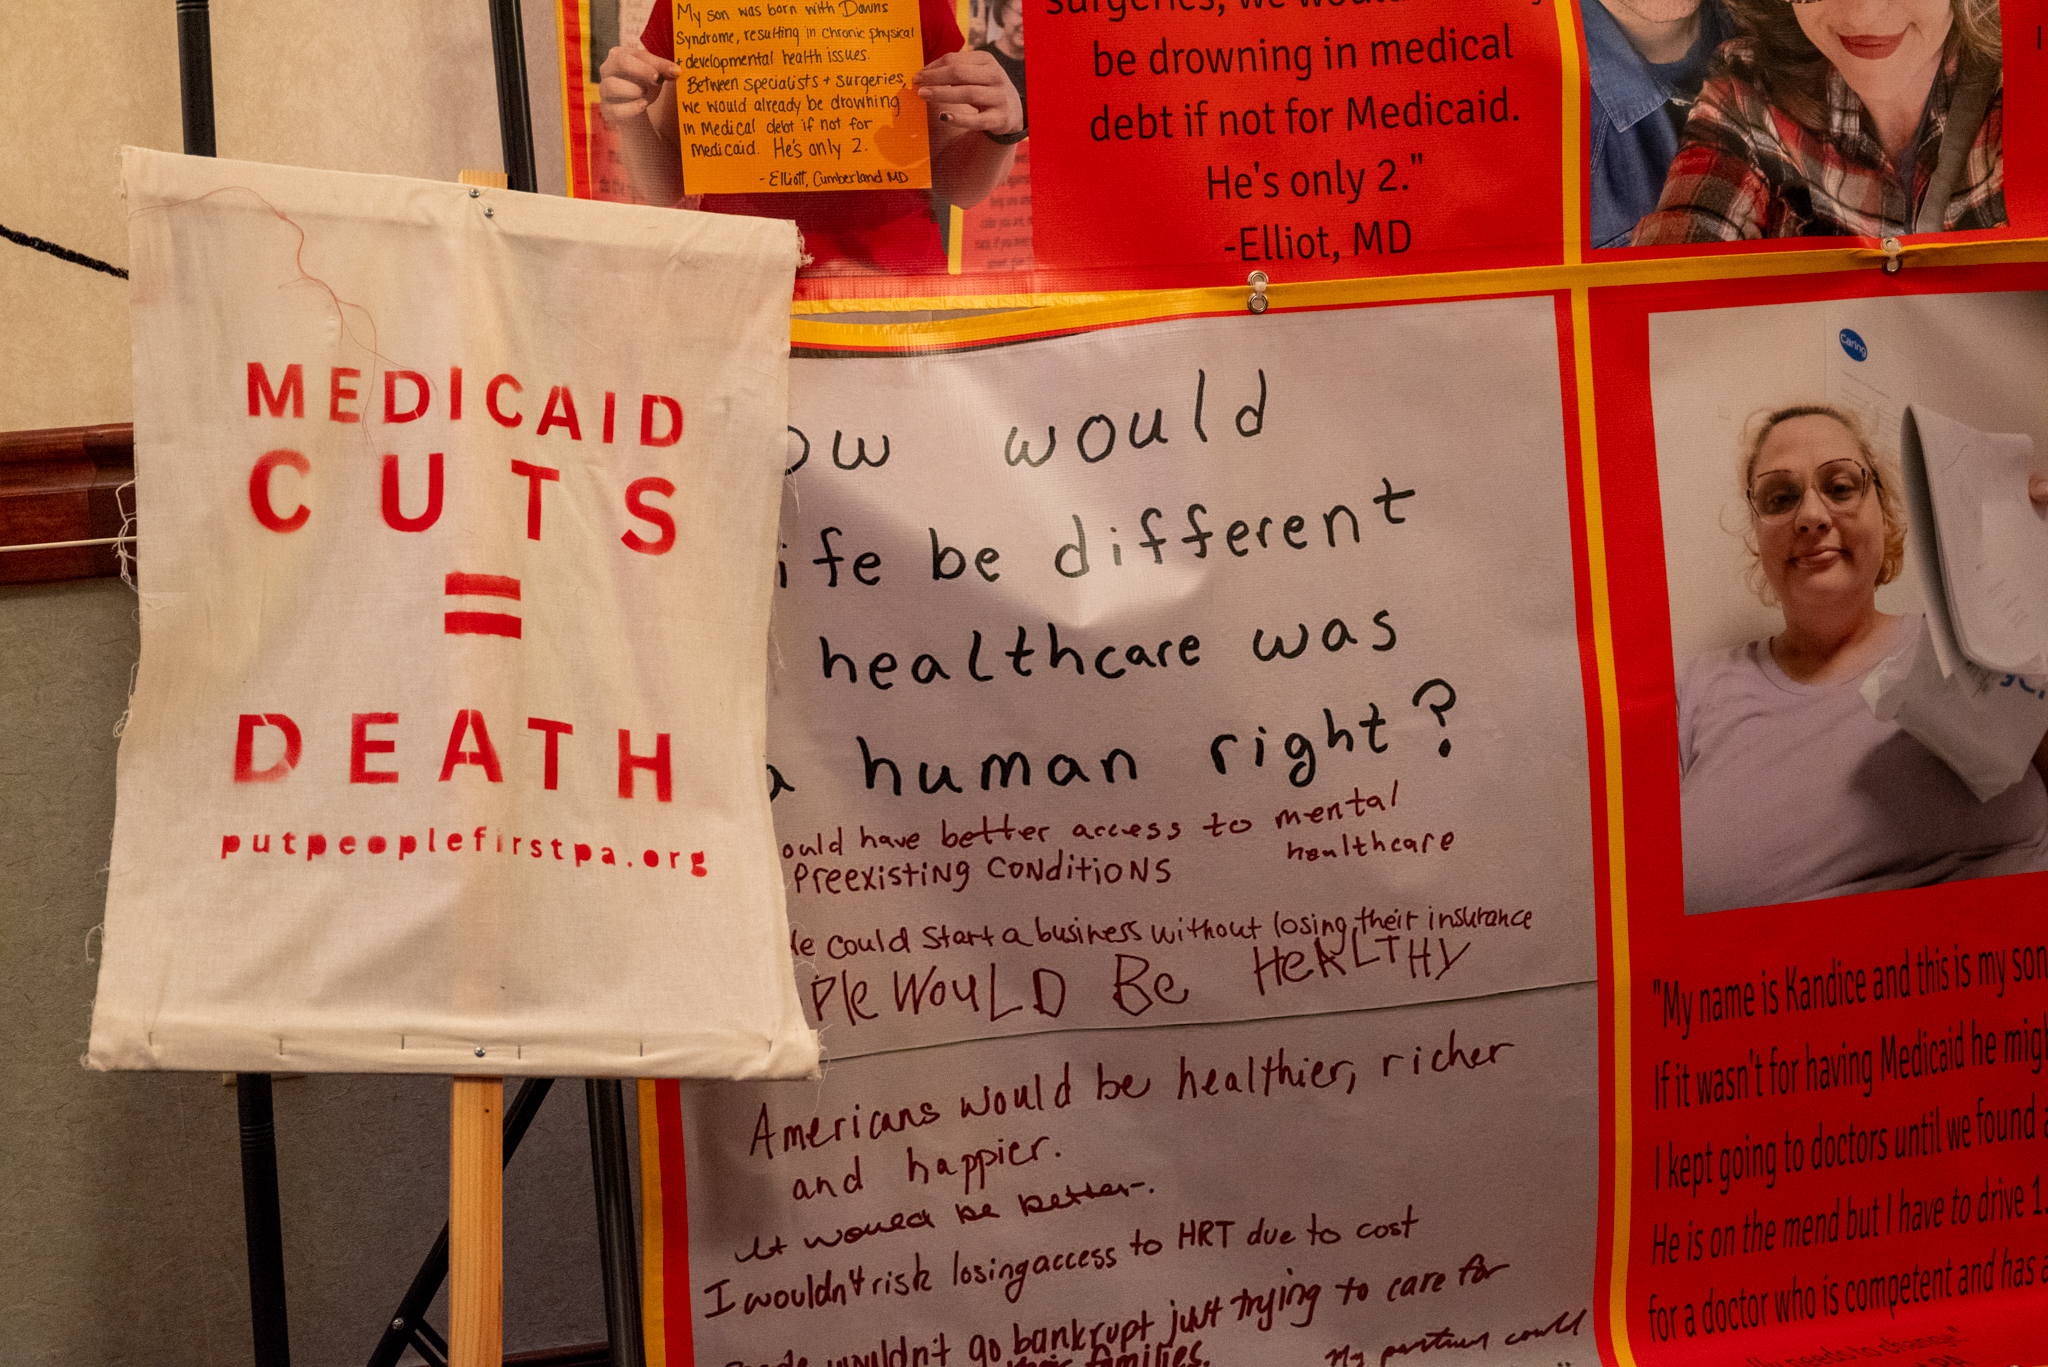 My son was born with Downs
Syndrome, resulting in chronic physical
+ developmental health issues.
Between specialists + surgeries,
we would already be drowning
in Medical debt if not for
Medicaid. He's only 2.
- Elliott, Cumberland MD
be drowning in medical
debt if not for Medicaid.
He's only 2."
-Elliot, MD
MEDICAID
CUTS
=
DEATH
putpeoplefirstpa.org
ow would
ife be different
healthcare was
a human right?
ould have better access to mental
healthcare
Preexisting Conditions
le could start a business without losing their insurance
ple WOULD Be HeALTHY
Americans would be healthier, richer
and happier.
It would be better.
I wouldn't risk losing access to HRT due to cost
wouldn't go bankrupt just trying to care for
their families.
My partner could
Caring
"My name is Kandice and this is my son
If it wasn't for having Medicaid he migh
I kept going to doctors until we found a
He is on the mend but I have to drive 1.
for a doctor who is competent and has a
needs to change."